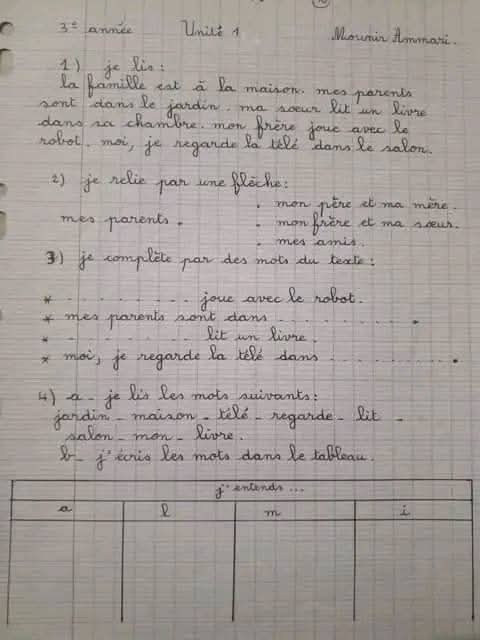 3e année Unité 1 Mounir Ammari.
1) je lis :
la famille est à la maison. mes parents
sont dans le jardin. ma sœur lit un livre
dans sa chambre. mon frère joue avec le
robot. moi, je regarde la télé dans le salon.
2) je relie par une flèche :
. mon père et ma mère.
mes parents . . mon frère et ma sœur.
. mes amis.
3) je complète par des mots du texte :
* - - - - - - - - - joue avec le robot.
* mes parents sont dans - - - - - - - - - .
* - - - - - - - - - lit un livre.
* moi, je regarde la télé dans - - - - - - - - - .
4) a - je lis les mots suivants :
jardin - maison - télé - regarde - lit -
salon - mon - livre.
b - j'écris les mots dans le tableau.
j'entends ...
a l m i